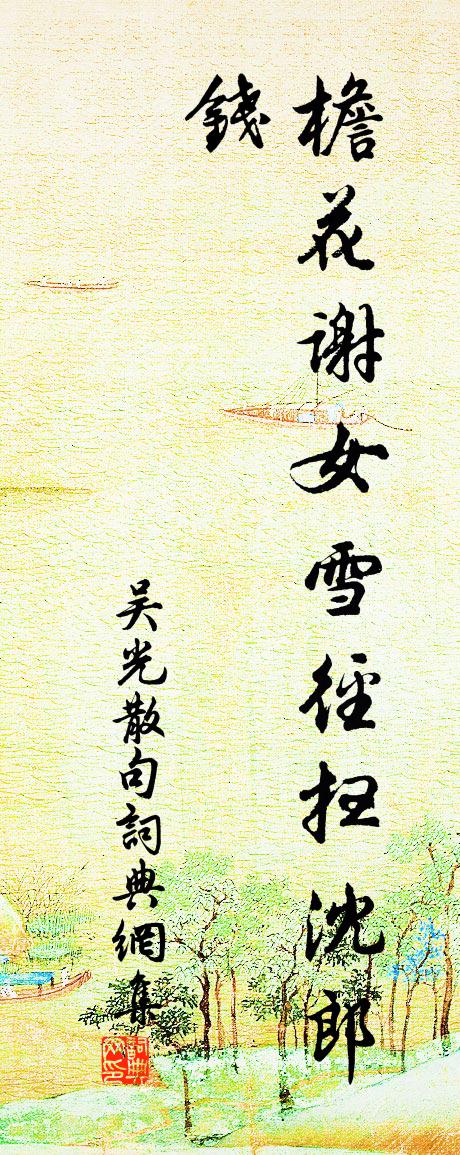 檐花謝女雪徑扫沈郎
錢
吴光散句詞典網集